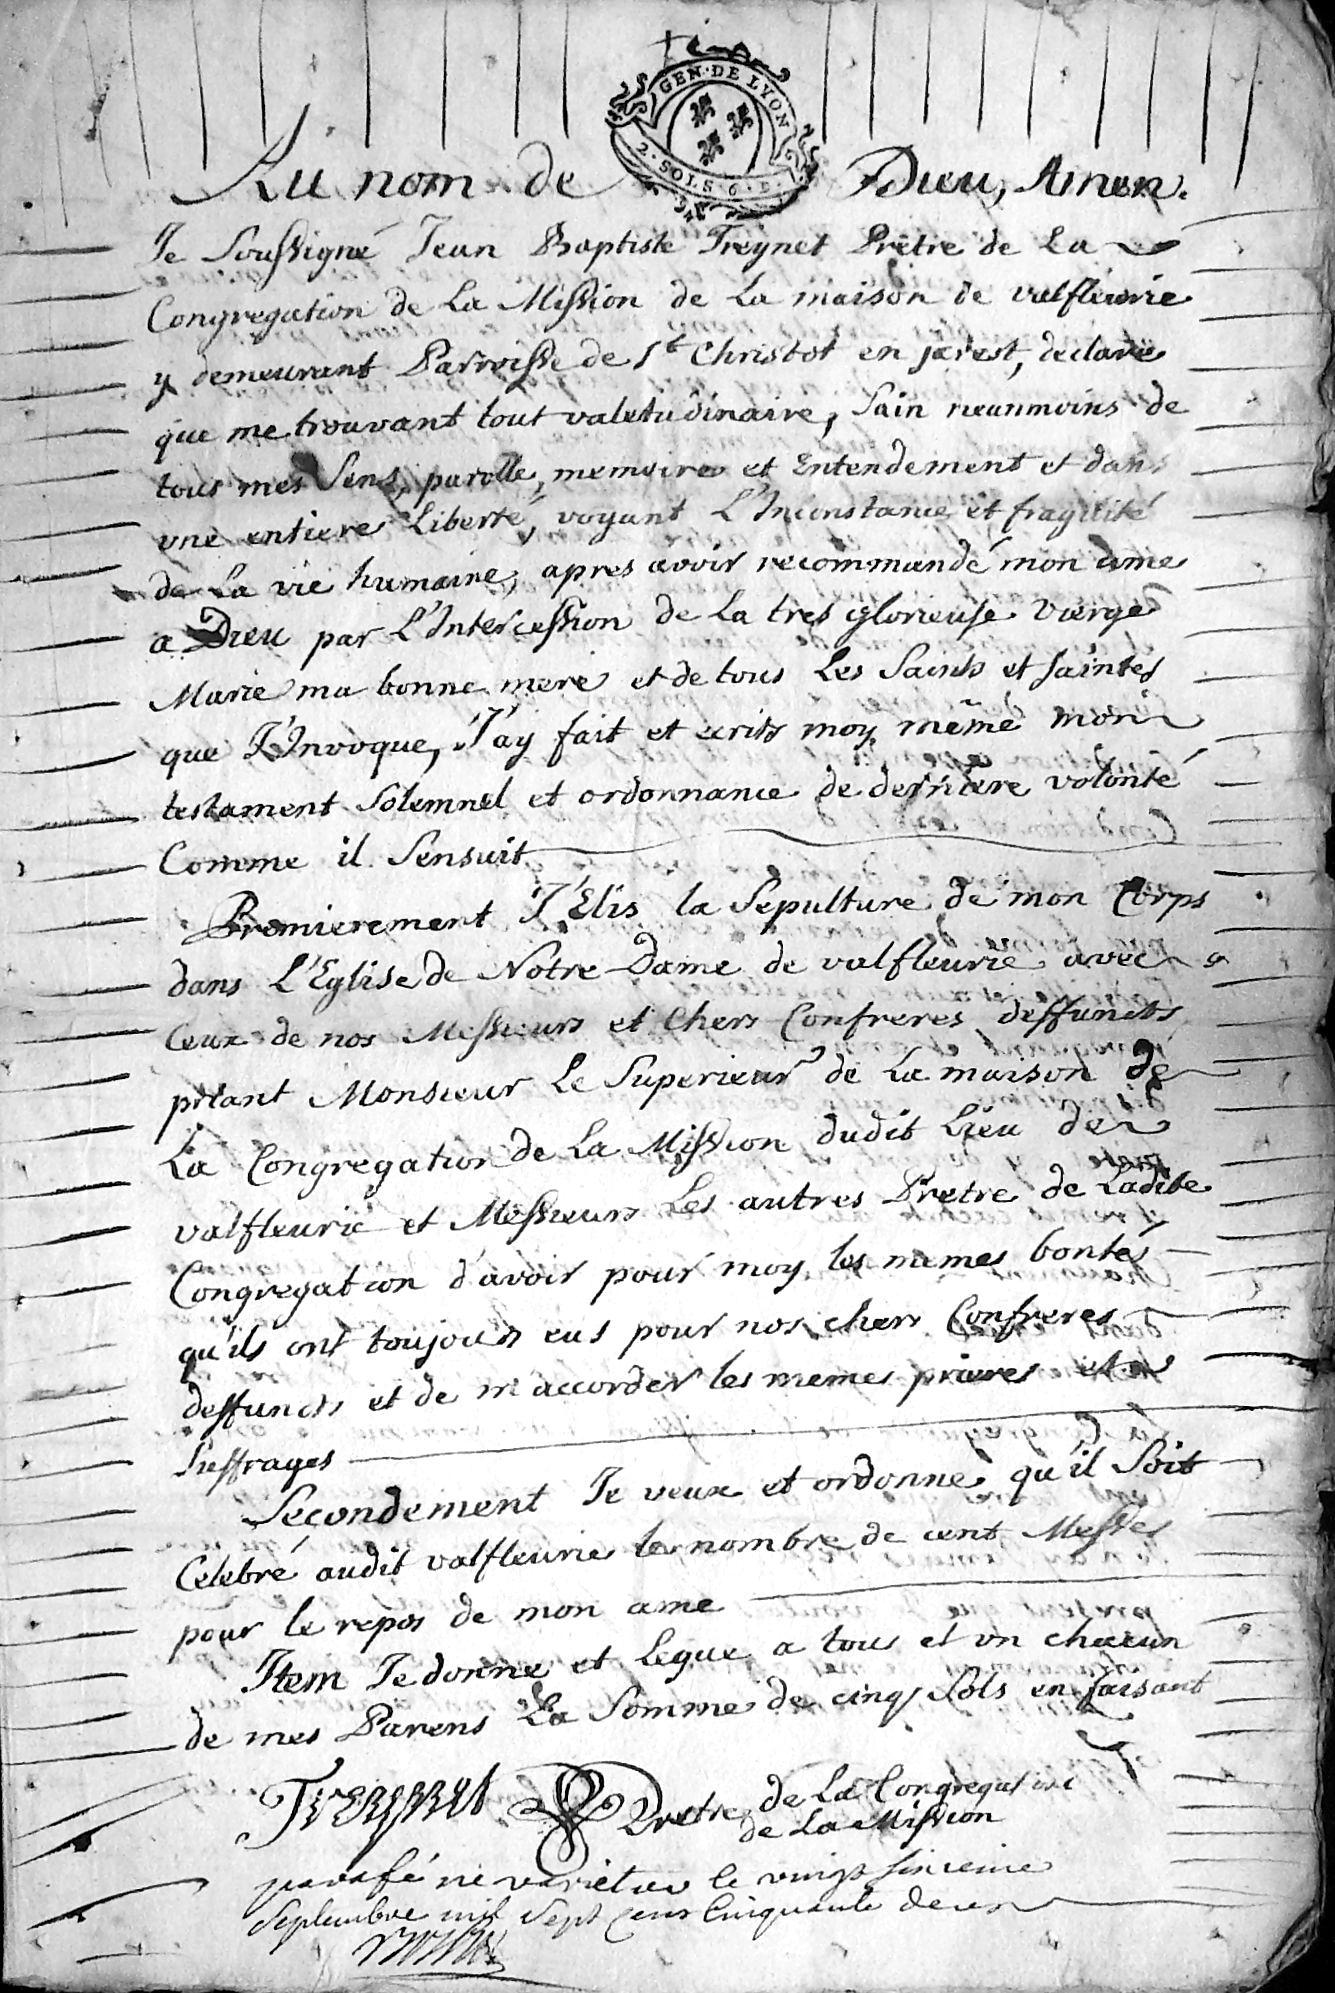 GEN · DE LYON
2 · SOLS · 6 · D ·
Au nom de Dieu, Amen.
Je Soussigné Jean Baptiste Treynet Prêtre de La
Congregation de La Mission de La maison de valfleurie
y demeurant Parroisse de St Christot en jarest, declare
que me trouvant tout valetudinaire, Sain neanmoins de
tous mes Sens, parolle, memoire et Entendement et dans
une entiere Liberté, voyant L'Inconstance et fragilité
de La vie humaine, apres avoir recommandé mon ame
a Dieu par L'Intercession de La tres glorieuse vierge
Marie ma bonne mere et de tous Les Saints et saintes
que J'Invoque, J'ay fait et ecrits moy même mon
testament Solemnel et ordonnance de derniere volonté
Comme il Sensuit
Premierement J'Elis la Sepulture de mon Corps
dans L'Eglise de Notre Dame de valfleurie avec
Ceux de nos Messieurs et Chers Confreres deffuncts
priant Monsieur Le Superieur de La maison de
La Congregation de La Mission dudit Lieu de
valfleurie et Messieurs Les autres Pretre de Ladite
Congregation d'avoir pour moy les memes bontés
qu'ils ont toujours eus pour nos chers Confreres
deffuncts et de m'accorder les memes prieres et
Suffrages
Secondement Je veux et ordonne qu'il Soit
Celebré audit valfleurie le nombre de cent Messes
pour le repos de mon ame
Item Je donne et Legue a tous et un chacun
de mes Parens La Somme de cinq Sols en faisant
Treynet Pretre de La Congregation
de La Mission
parafé ne varietur le vingt
Septembre mil Sept Cens Cinquante deux